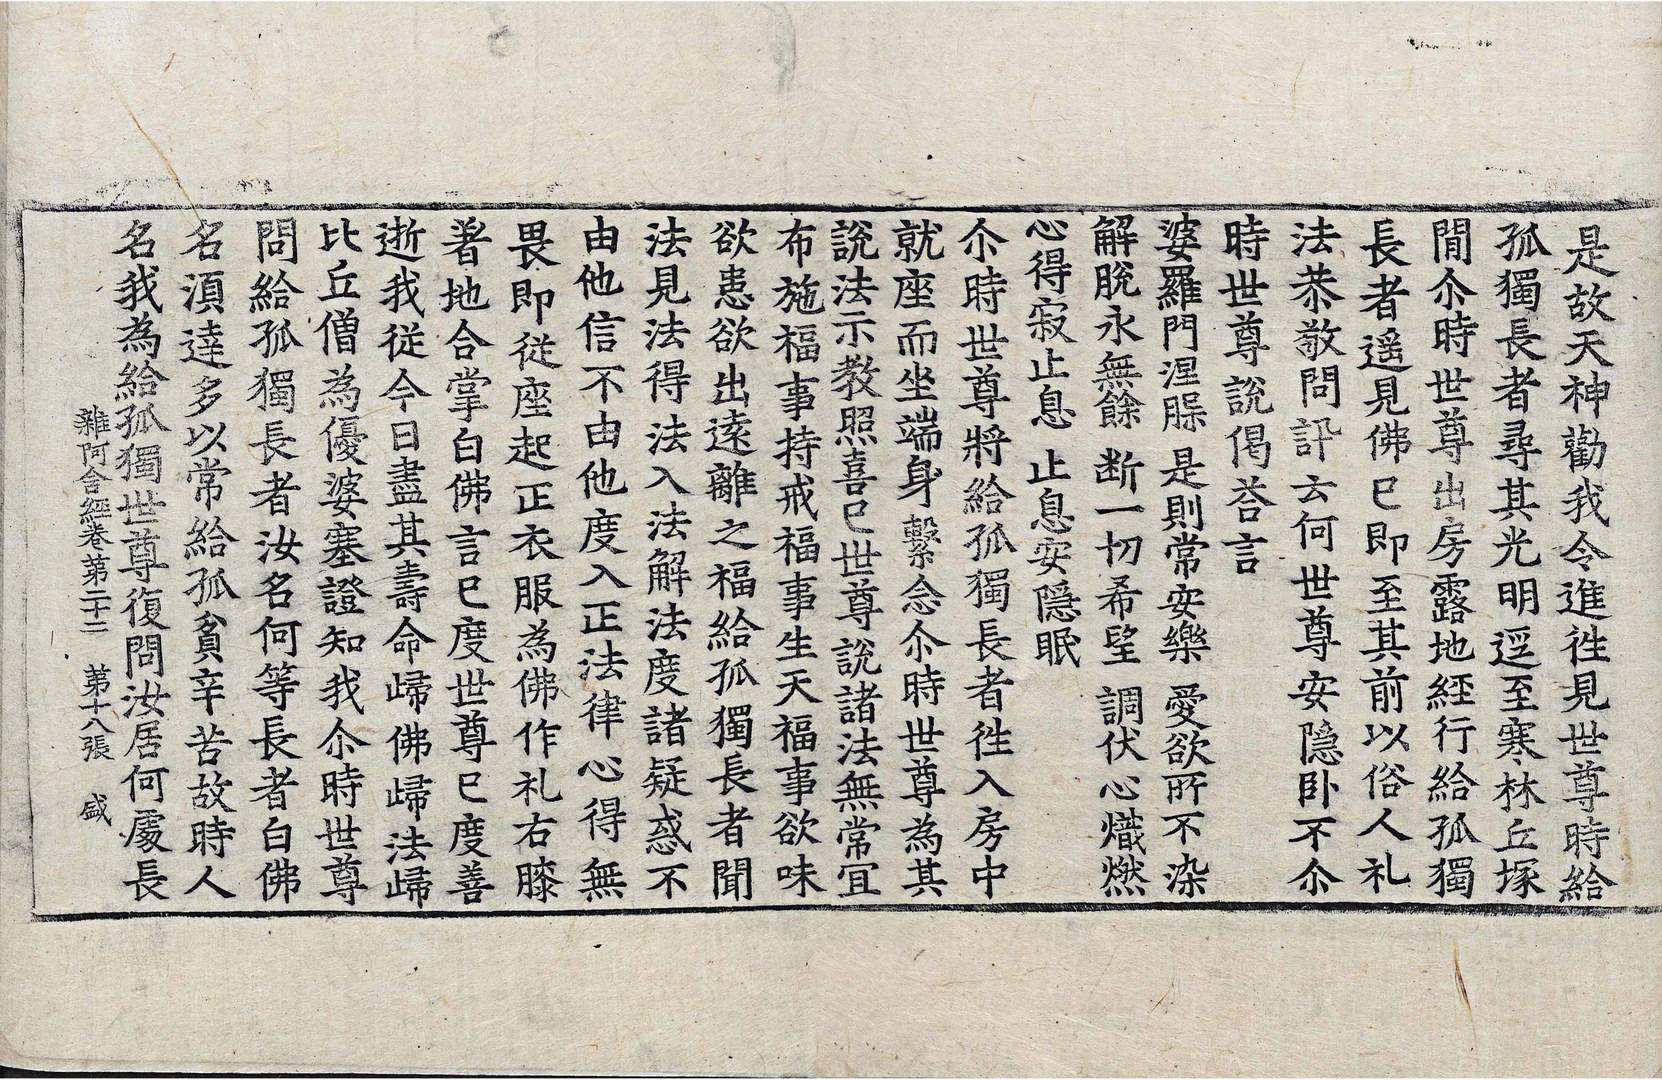 是故天神勸我令進徃見世尊時給
孤獨長者尋其光明逕至寒林丘塚
間尒時世尊出房露地經行給孤獨
長者遥見佛已即至其前以俗人礼
法恭敬問訊云何世尊安隱卧不尒
時世尊說偈荅言
婆羅門涅槃 是則常安樂 愛欲所不染
解脫永無餘 断一切希望 調伏心熾燃
心得寂止息 止息安隱眠
尒時世尊將給孤獨長者徃入房中
就座而坐端身繫念尒時世尊為其
說法示教照喜已世尊說諸法無常宜
布施福事持戒福事生天福事欲味
欲患欲出遠離之福給孤獨長者聞
法見法得法入法解法度諸疑惑不
由他信不由他度入正法律心得無
畏即從座起正衣服為佛作礼右膝
著地合掌白佛言已度世尊已度善
逝我從今日盡其壽命歸佛歸法歸
比丘僧為優婆塞證知我尒時世尊
問給孤獨長者汝名何等長者白佛
名湏達多以常給孤貧辛苦故時人
名我為給孤獨世尊復問汝居何處長
雜阿含經卷第二十二 第十八張 盛